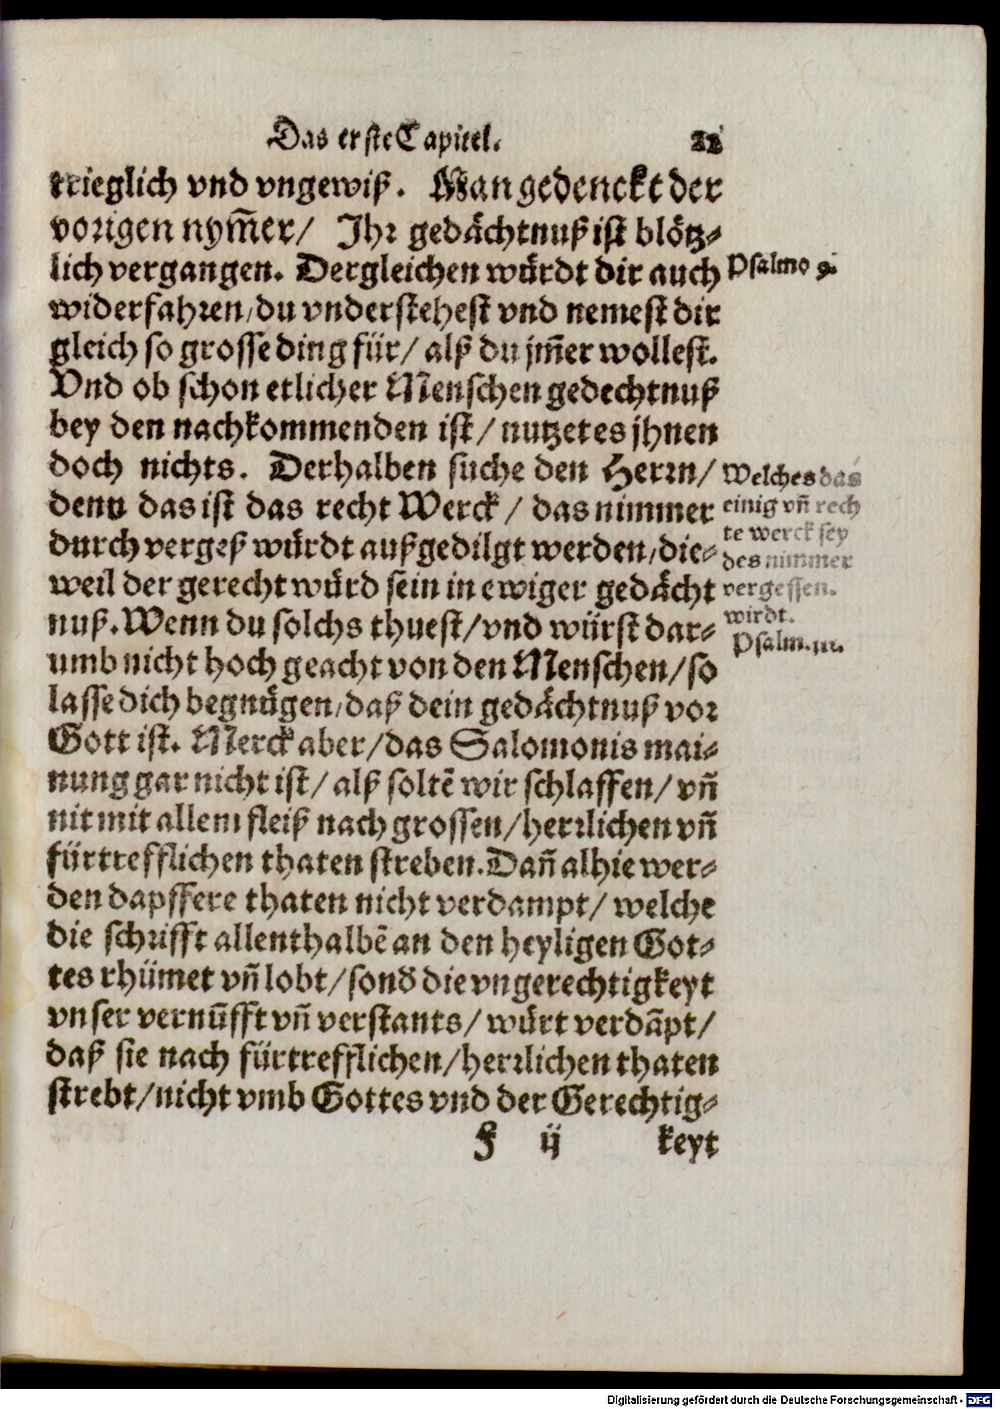 Das erste Capitel. 22
trieglich vnd vngewiß. Man gedenckt der
vorigen nym̃er/ Ihr gedächtnuß ist blötz-
lich vergangen. Dergleichen würdt dir auch
Psalmo 9.
widerfahren/du vnderstehest vnd nemest dir
gleich so grosse ding für/ alß du jm̃er wollest.
Vnd ob schon etlicher Menschen gedechtnuß
bey den nachkommenden ist/ nutzet es jhnen
doch nichts. Derhalben suche den Herrn/
denn das ist das recht Werck/ das nimmer
durch vergeß würdt außgedilgt werden/die-
weil der gerecht würd sein in ewiger gedächt
nuß. Wenn du solchs thuest/vnd würst dar-
Welches das
einig vñ rech
te werck sey
des nimmer
vergessen.
wirdt.
Psalm.111.
umb nicht hoch geacht von den Menschen/so
lasse dich begnügen/daß dein gedächtnuß vor
Gott ist. Merck aber/das Salomonis mai-
nung gar nicht ist/ alß soltẽ wir schlaffen/ vñ
nit mit allem fleiß nach grossen/herrlichen vñ
fürtrefflichen thaten streben. Dañ alhie wer-
den dapffere thaten nicht verdampt/ welche
die schrifft allenthalbẽ an den heyligen Got-
tes rhümet vñ lobt/sonď die vngerechtigkeyt
vnser vernũfft vñ verstants/ würt verdãpt/
daß sie nach fürtrefflichen/herrlichen thaten
strebt/nicht vmb Gottes vnd der Gerechtig-
F ij keyt
Digitalisierung gefördert durch die Deutsche Forschungsgemeinschaft - DFG